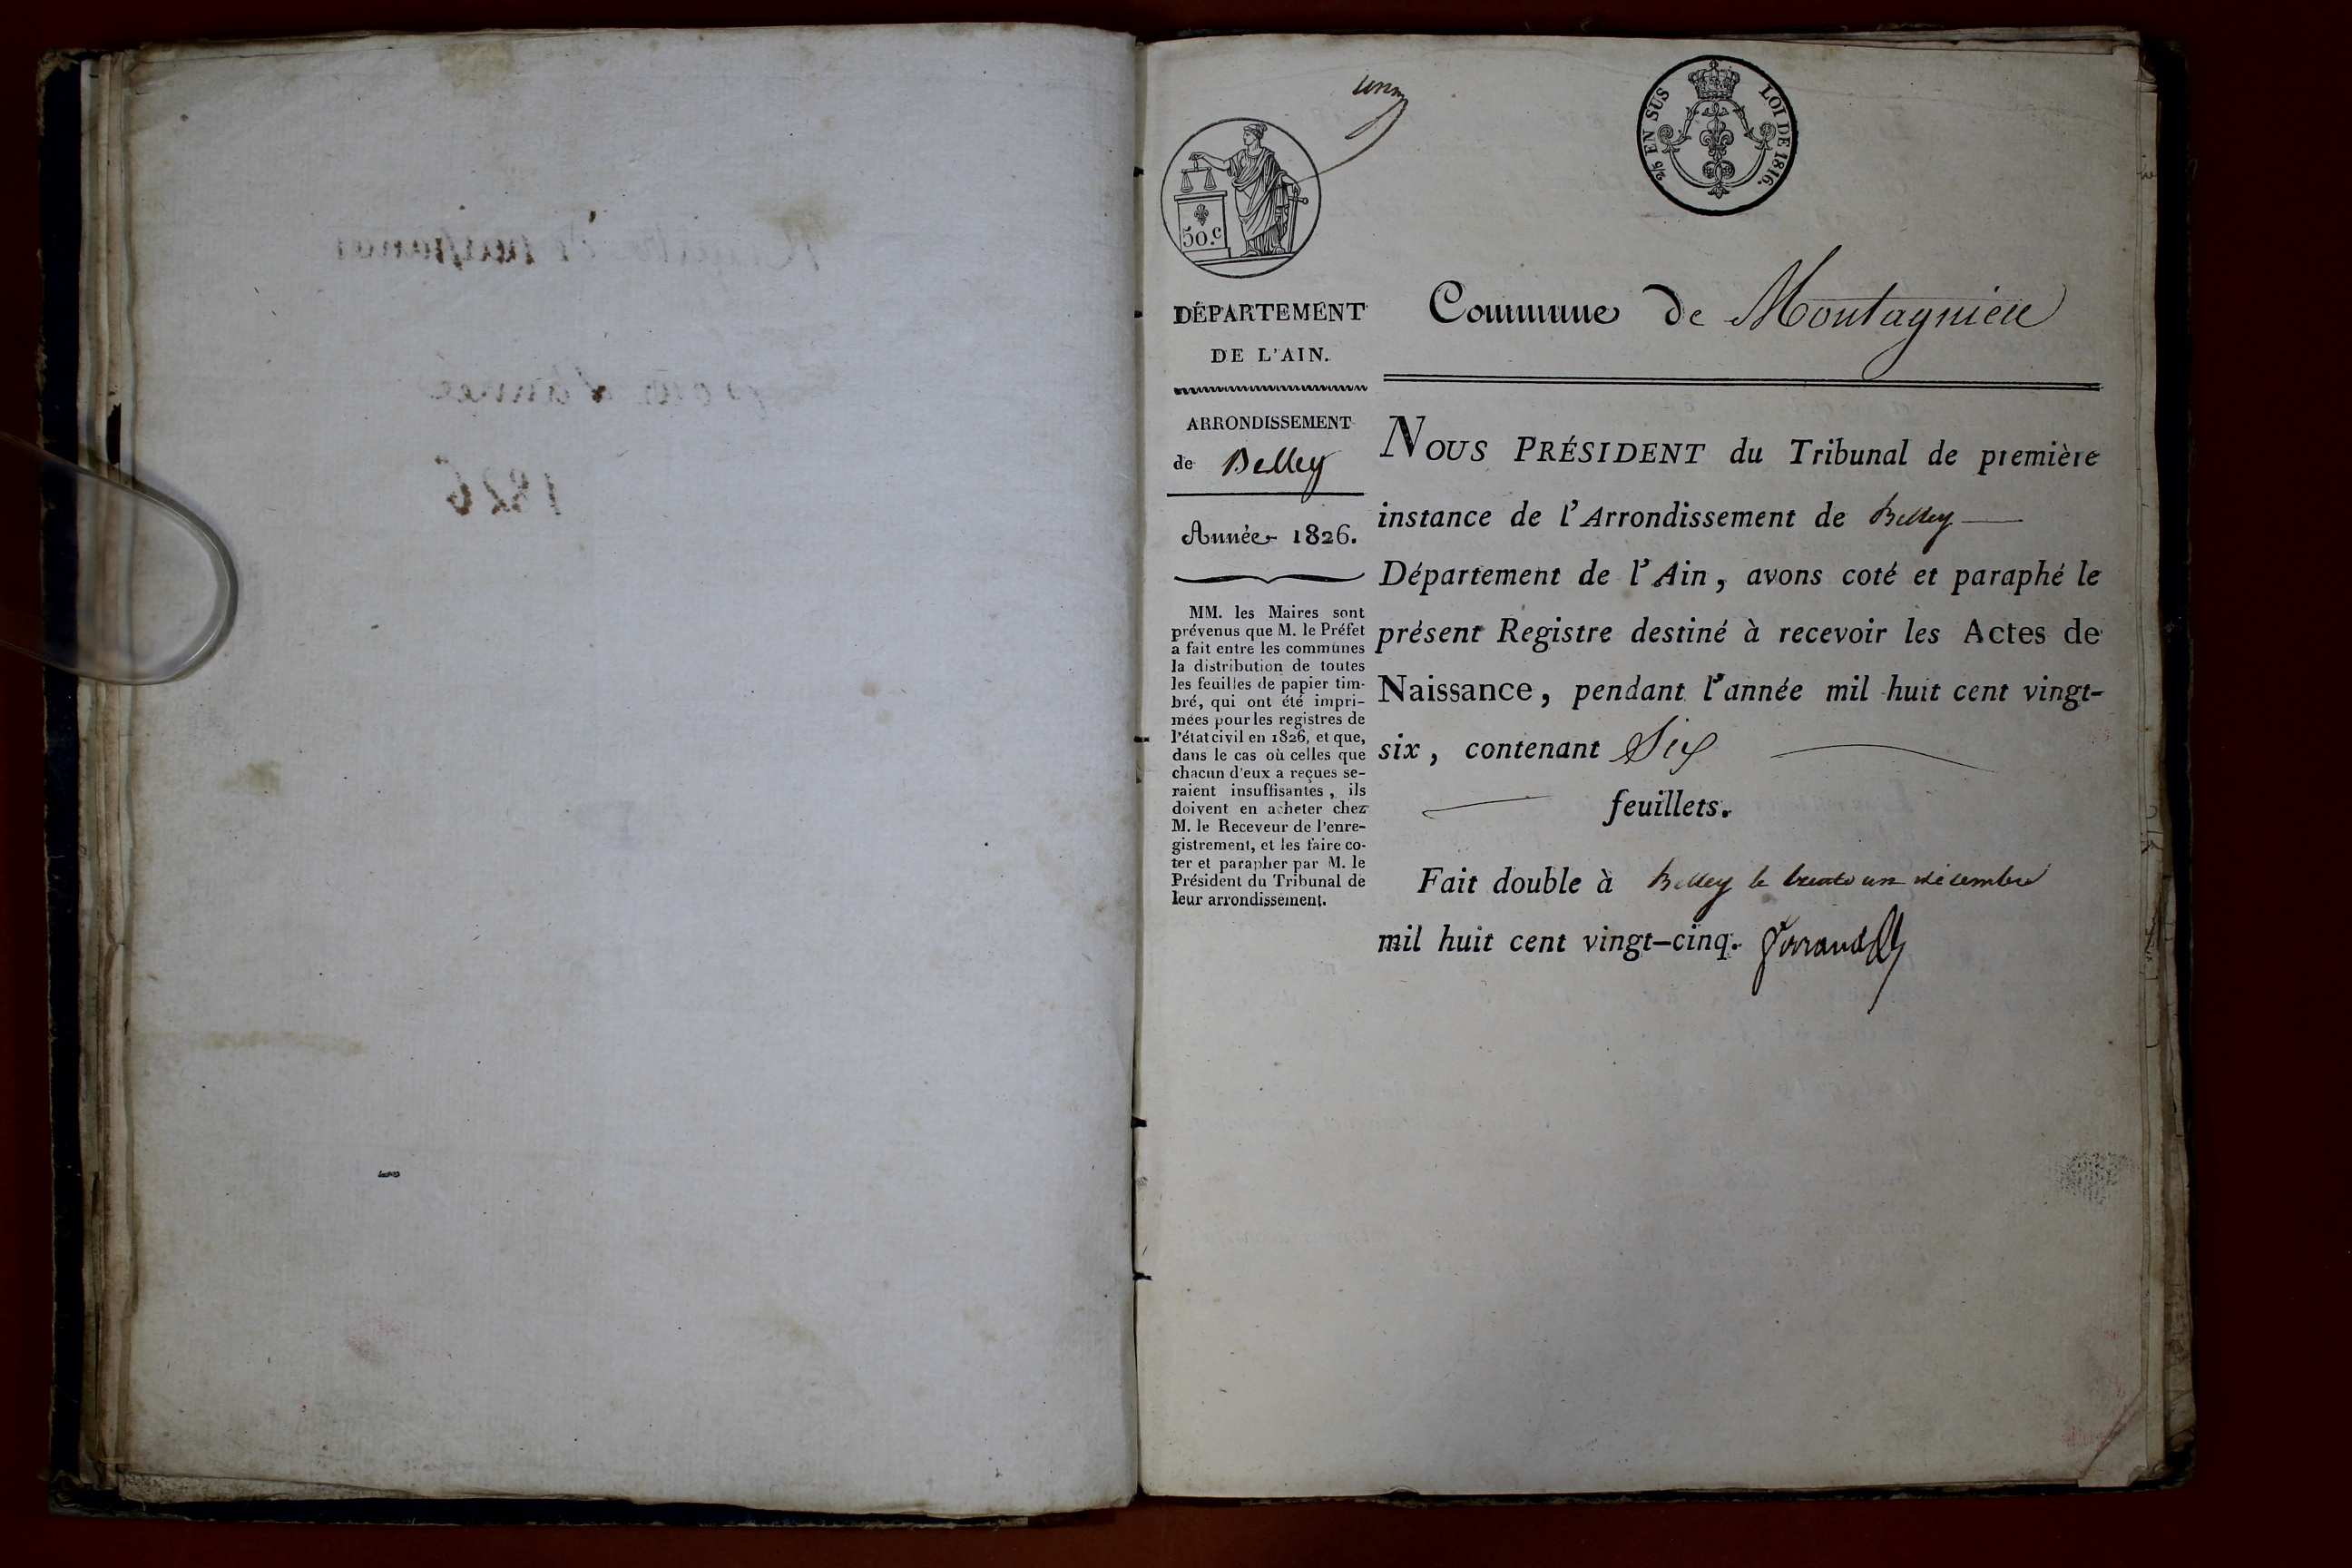 Registre de naissances
pour l'année
1826
un
50.c
2/5 EN SUS LOI DE 1816.
DÉPARTEMENT
DE L'AIN.
ARRONDISSEMENT
de Belley
Année 1826.
MM. les Maires sont
prévenus que M. le Préfet
a fait entre les communes
la distribution de toutes
les feuilles de papier tim-
bré, qui ont été impri-
mées pour les registres de
l'état civil en 1826, et que,
dans le cas où celles que
chacun d'eux a reçues se-
raient insuffisantes, ils
doivent en acheter chez
M. le Receveur de l'enre-
gistrement, et les faire co-
ter et parapher par M. le
Président du Tribunal de
leur arrondissement.
Commune de Montagnieu
NOUS PRÉSIDENT du Tribunal de première
instance de l'Arrondissement de Belley
Département de l'Ain, avons coté et paraphé le
présent Registre destiné à recevoir les Actes de
Naissance, pendant l'année mil huit cent vingt-
six, contenant Six
feuillets.
Fait double à Belley le trente un décembre
mil huit cent vingt-cinq.